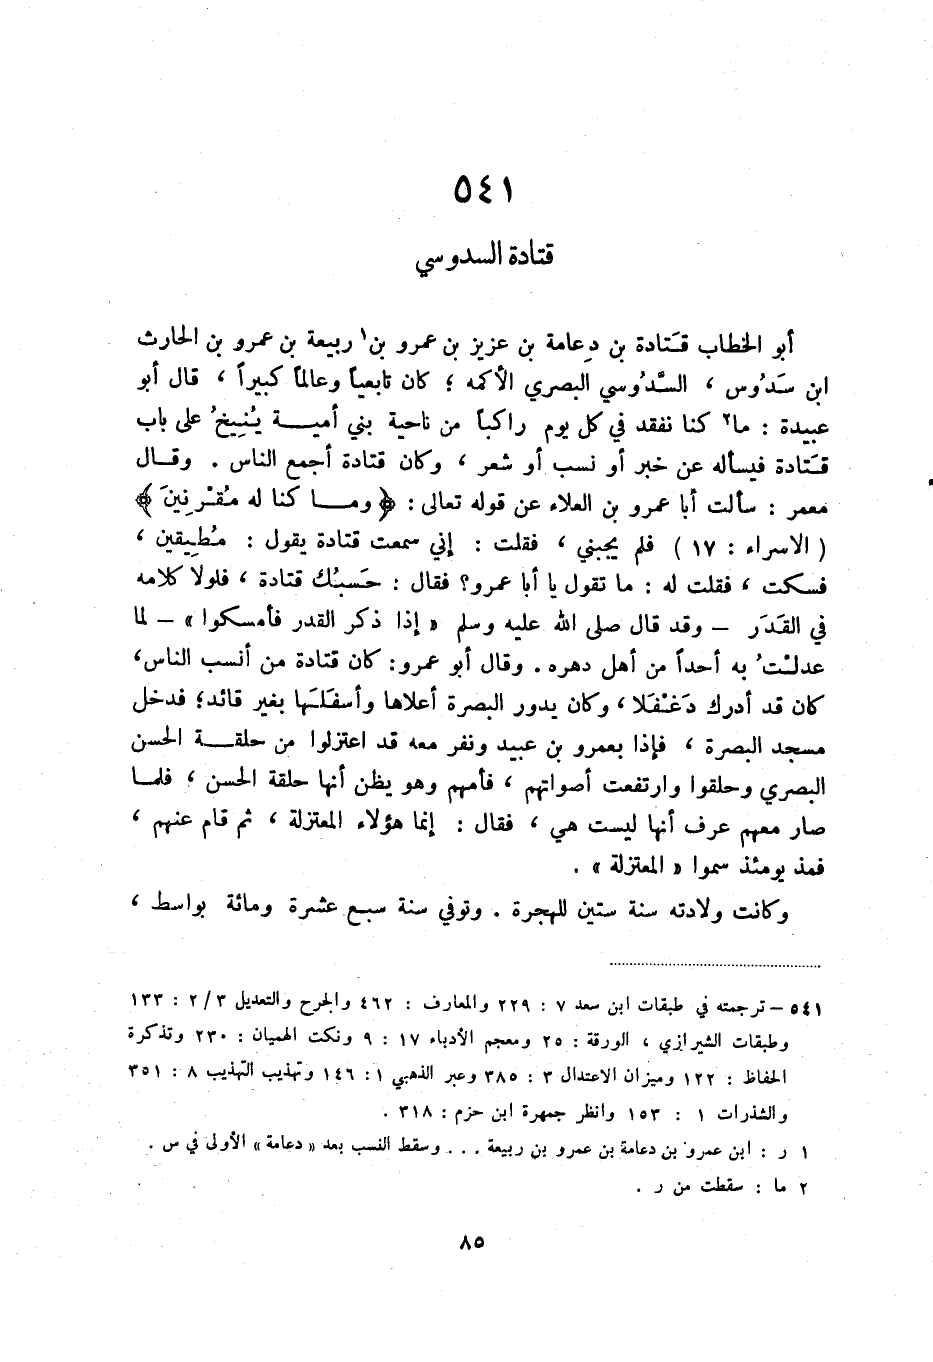 ٥٤١
قتادة السدوسي
أبو الخطاب قَتادة بن دِعامة بن عزيز بن عمرو بن١ ربيعة بن عمرو بن الحارث
ابن سَدُوس ، السَّدُوسي البصري الأكمه ؛ كان تابعياً وعالماً كبيراً ، قال أبو
عبيدة : ما٢ كنا نفقد في كل يوم راكباً من ناحية بني أمية يُنِيخُ على باب
قَتادة فيسأله عن خبر أو نسب أو شعر ، وكان قتادة أجمع الناس . وقال
معمر : سألت أبا عمرو بن العلاء عن قوله تعالى : ﴿ وما كنا له مُقْرِنِينَ ﴾
( الاسراء : ١٧ ) فلم يجبني ، فقلت : إني سمعت قتادة يقول : مُطِيقين ،
فسكت ، فقلت له : ما تقول يا أبا عمرو؟ فقال : حَسبُك قتادة ، فلولا كلامه
في القَدَر – وقد قال صلى الله عليه وسلم « إذا ذكر القدر فأمسكوا » – لما
عدلْتُ به أحداً من أهل دهره . وقال أبو عمرو: كان قتادة من أنسب الناس،
كان قد أدرك دَغْفَلا ، وكان يدور البصرة أعلاها وأسفَلَها بغير قائد؛ فدخل
مسجد البصرة ، فإذا بعمرو بن عبيد ونفر معه قد اعتزلوا من حلقة الحسن
البصري وحلقوا وارتفعت أصواتهم ، فأمهم وهو يظن أنها حلقة الحسن ، فلما
صار معهم عرف أنها ليست هي ، فقال : إنما هؤلاء المعتزلة ، ثم قام عنهم ،
فمذ يومئذ سموا « المعتزلة » .
وكانت ولادته سنة ستين للهجرة . وتوفي سنة سبع عشرة ومائة بواسط ،
٥٤١ – ترجمته في طبقات ابن سعد ٧ : ٢٢٩ والمعارف : ٤٦٢ والجرح والتعديل ٢/٣ : ١٣٣
وطبقات الشيرازي ، الورقة : ٢٥ ومعجم الأدباء ١٧ : ٩ ونكت الهميان : ٢٣٠ وتذكرة
الحفاظ : ١٢٢ وميزان الاعتدال ٣ : ٣٨٥ وعبر الذهبي ١ : ١٤٦ وتهذيب التهذيب ٨ : ٣٥١
والشذرات ١ : ١٥٣ وانظر جمهرة ابن حزم : ٣١٨ .
١ ر : ابن عمرو بن دعامة بن عمرو بن ربيعة . . . وسقط النسب بعد « دعامة » الأولى في س .
٢ ما : سقطت من ر .
٨٥